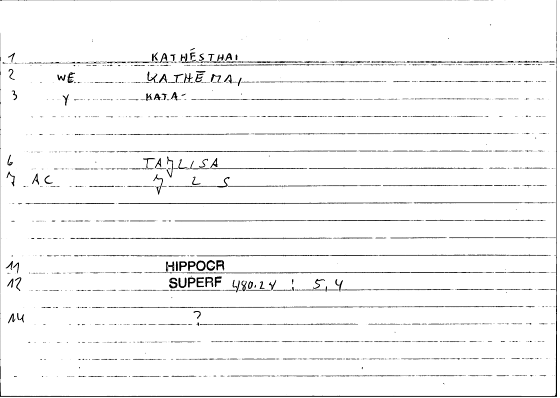 1 KATHĒSTHAI
2 WE KATHĒMAI
3 Y KATA-
6 TAJLISA
7 AC J L S
11 HIPPOCR
12 SUPERF 480.24 : 5,4
14 ?